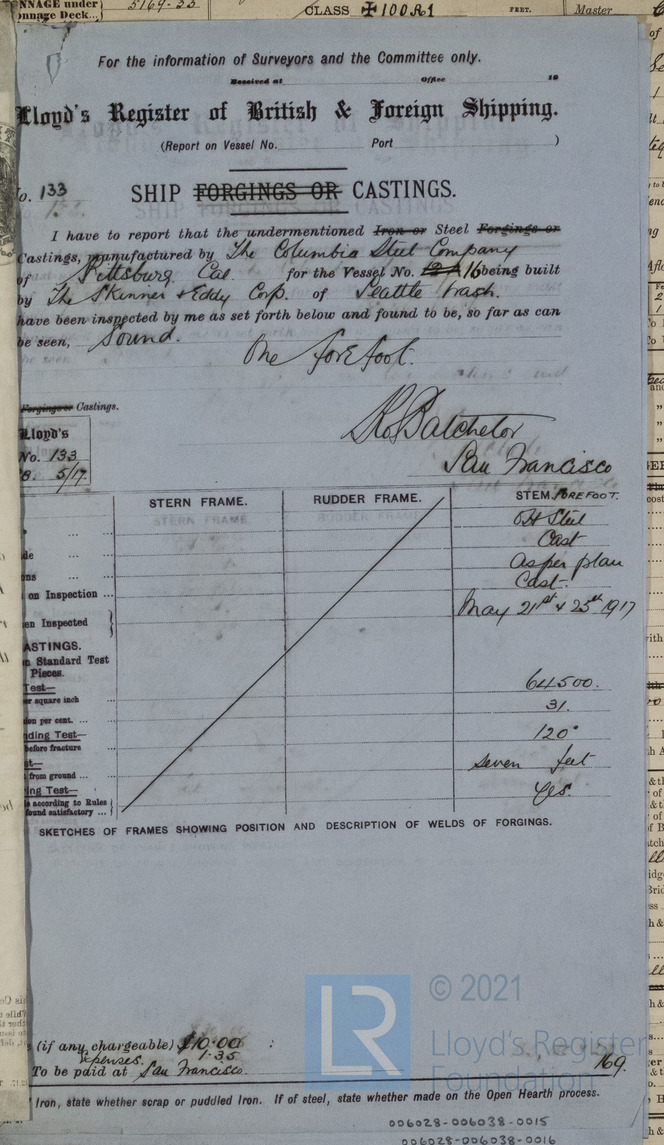 NNAGE under
onnage Deck..
5169.33
CLASS ✠ 100A1
FEET.
Master
For the information of Surveyors and the Committee only.
Received at Office 19
Lloyd's Register of British & Foreign Shipping.
(Report on Vessel No. Port )
No. 133
SHIP FORGINGS OR CASTINGS.
I have to report that the undermentioned Iron or Steel Forgings or
Castings, manufactured by The Columbia Steel Company
of Pittsburg Cal. for the Vessel No. 16 being built
by The Skinner & Eddy Corp. of Seattle Wash.
have been inspected by me as set forth below and found to be, so far as can
be seen, Sound.
One forefoot.
Forgings or Castings.
Lloyd's
No. 133
B. 5/17
R. Batchelor
San Francisco
STERN FRAME. RUDDER FRAME. STEM. FOREFOOT.
OH Steel
Cast
de ... As per plan
ons ... Cast.
on Inspection ...
en Inspected May 21st & 25th 1917
ASTINGS.
n Standard Test
Pieces.
Test— 64500.
er square inch
ion per cent. ... 31.
ding Test— 120°
before fracture
st— seven feet
from ground ...
ing Test— Yes.
s according to Rules
found satisfactory ...
SKETCHES OF FRAMES SHOWING POSITION AND DESCRIPTION OF WELDS OF FORGINGS.
© 2021
LR
Lloyd's Register
Foundation
s (if any chargeable) $10.00 :
Expenses. 1.35
To be paid at San Francisco.
169.
Iron, state whether scrap or puddled Iron. If of steel, state whether made on the Open Hearth process.
006028-006038-0015
006028-006038-0016